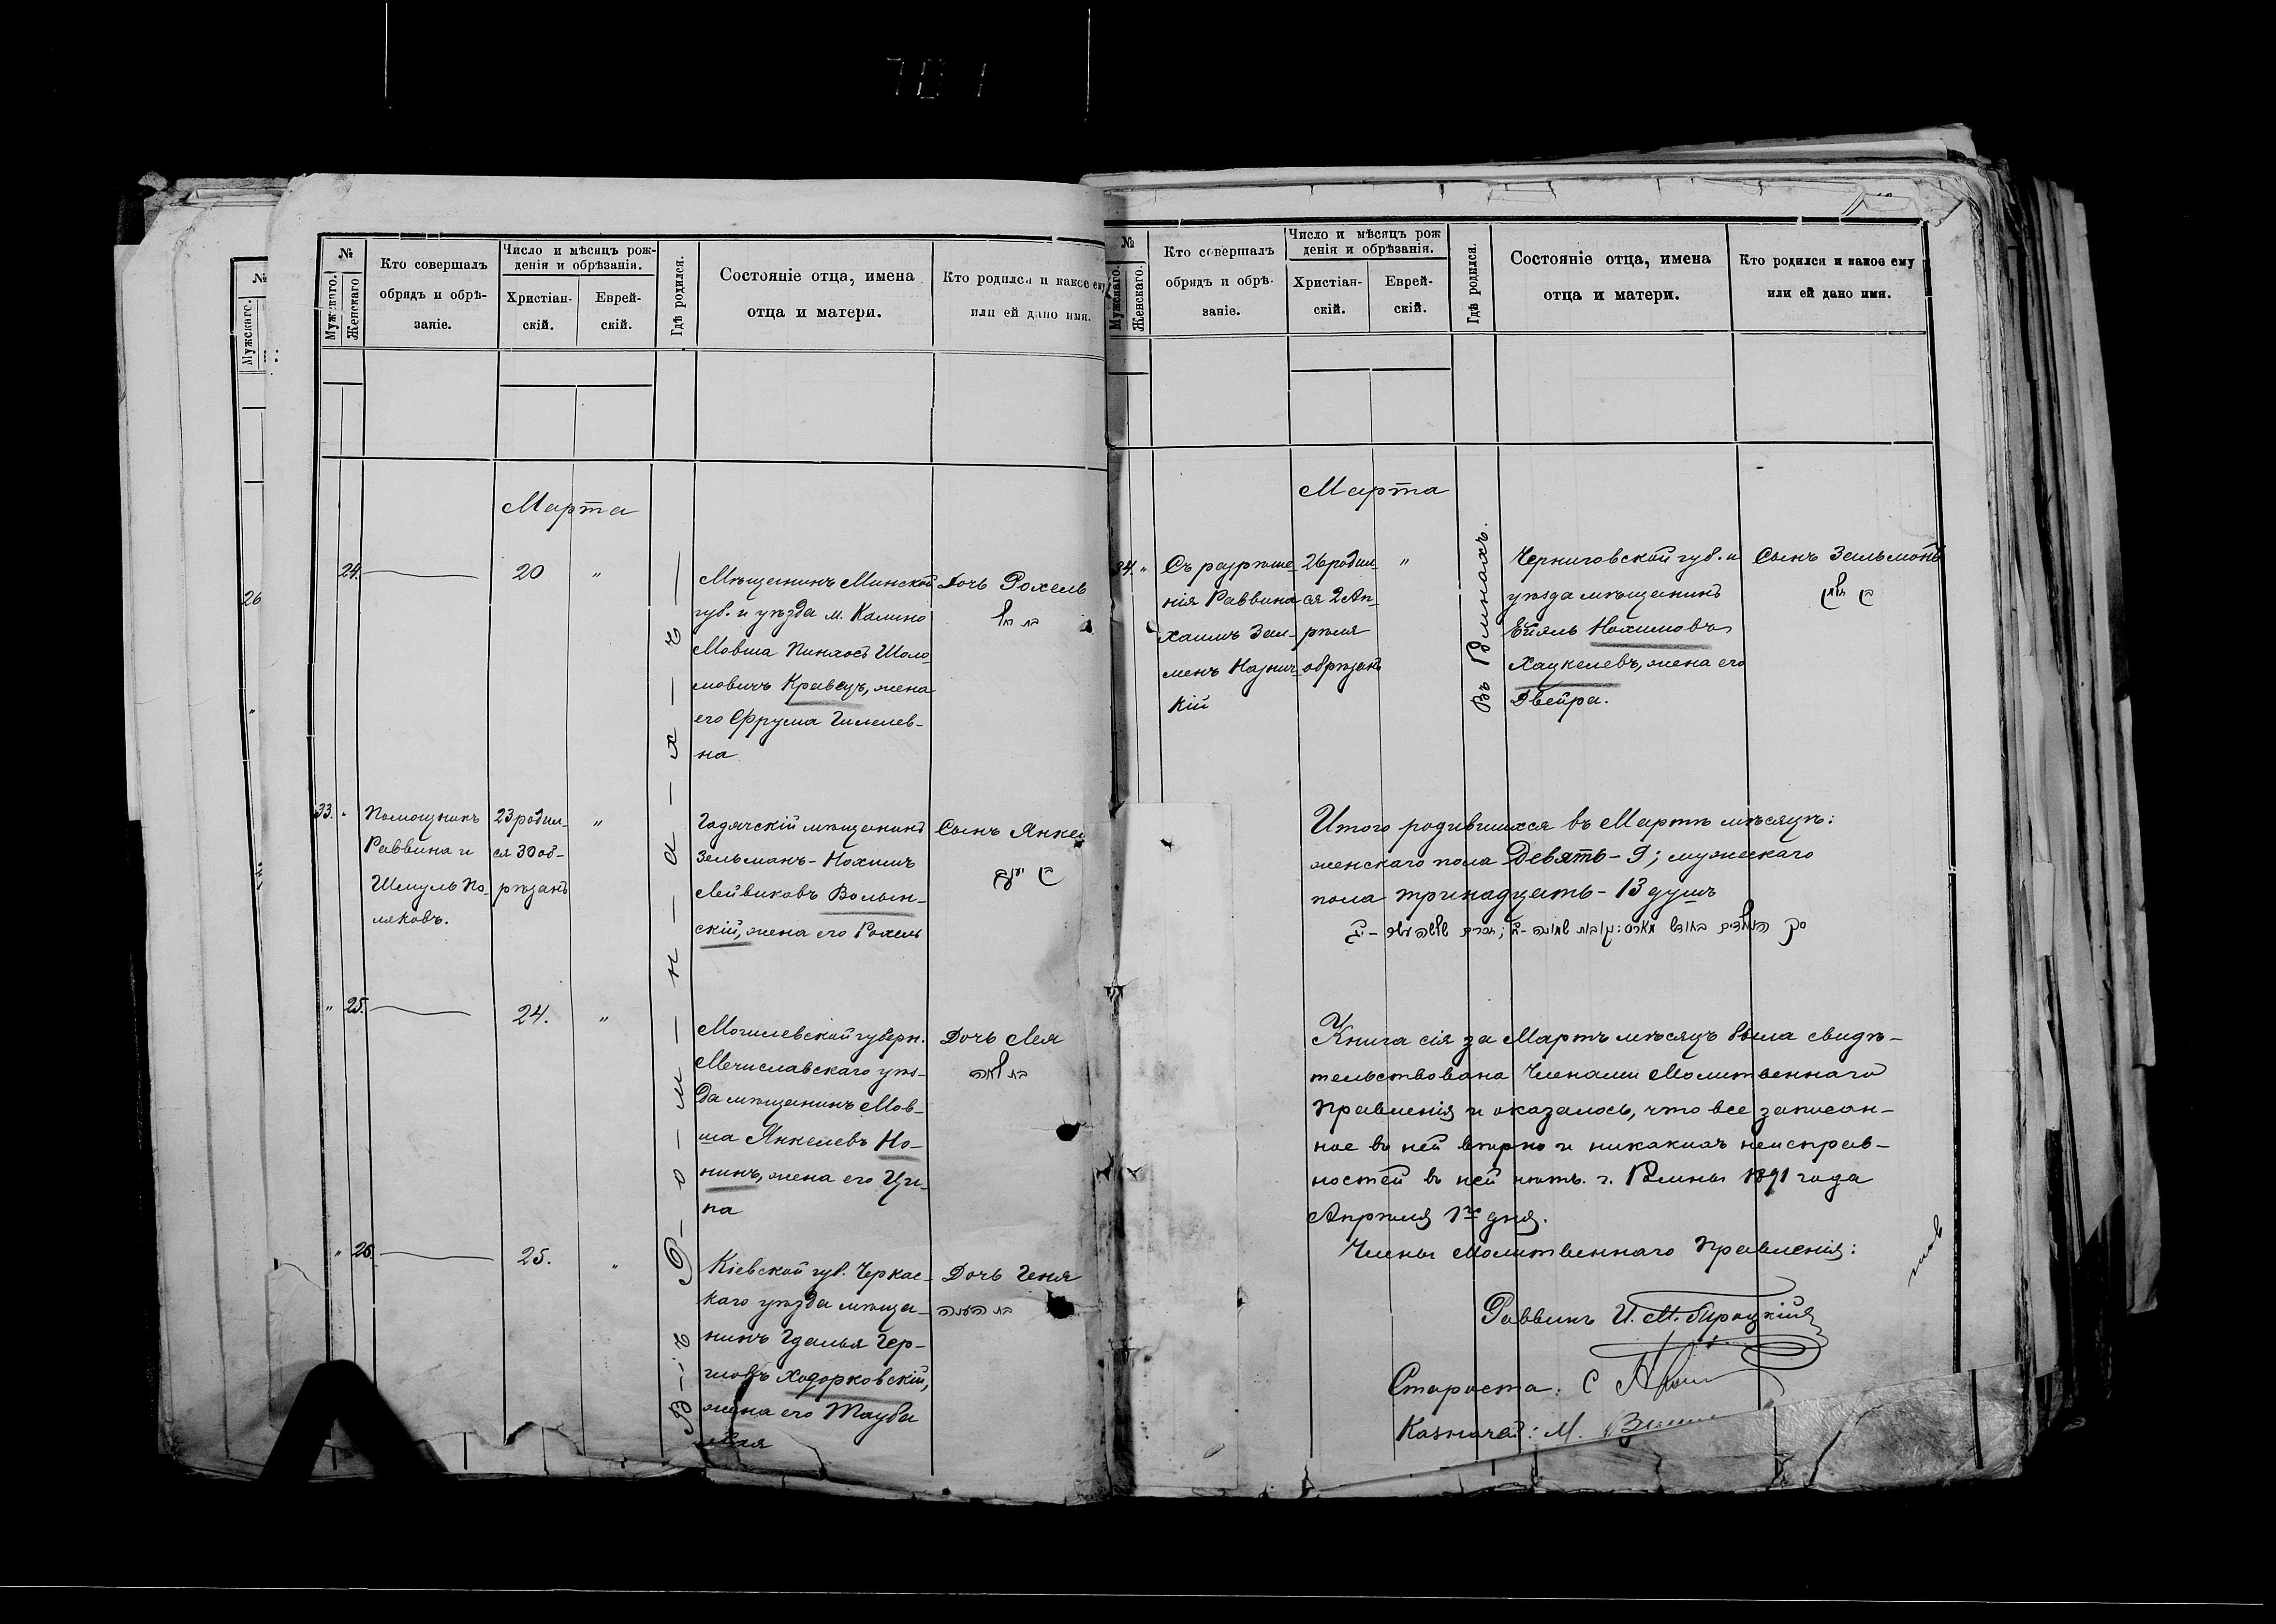 701
№
Мужскаго.
26
"
№
Мужскаго.
Женскаго
Кто совершалъ
обрядъ и обрѣ-
заніе.
Число и мѣсяцъ рож-
денія и обрѣзанія.
Христіан-
скій.
Еврей-
скій.
Гдѣ родился.
Состояніе отца, имена
отца и матери.
Кто родился и какое ему
или ей дано имя.
Марта
В-ъ Р-о-м-н-а-х-ъ
24.
20
"
Мѣщанинъ Минской
губ. и уѣзда м. Калино
Мовша Пинхосъ Шоло-
мовичъ Кравецъ, жена
его Фрума Гилелев-
на
Дочь Рохель
בת רחל
33. "
Помощникъ
Раввина и
Шмуль По-
ляковъ.
23 родил-
ся 30 об-
рѣзанъ
"
Гадячскій мѣщанинъ
Зельманъ-Нохимъ
Лейвиковъ Волын-
скій, жена его Рохель
Сынъ Янкел
בן יעקב
" 25.
24.
"
Могилевской губерн.
Мечиславскаго уѣз-
да мѣщанинъ Мов-
ша Янкелевъ Но-
нинъ, жена его Ци-
па
Дочь Лея
בת לאה
" 26.
25.
"
Кіевской губ. Черкас-
каго уѣзда мѣща-
нинъ Гдалья Гер-
шовъ Ходорковскій,
жена его Тауба
Дочь Геня
בת העניה
№
Мужскаго.
Женскаго.
Кто совершалъ
обрядъ и обрѣ-
заніе.
Число и мѣсяцъ рож
денія и обрѣзанія.
Христіан-
скій.
Еврей-
скій.
Гдѣ родился.
Состояніе отца, имена
отца и матери.
Кто родился и какое ему
или ей дано имя.
Марта
Въ Ромнахъ.
34. "
Съ разрѣше-
нія Раввина
Хаимъ Зал-
менъ Наз
кій
26 родил-
ся 2 Ап-
рѣля
обрѣзанъ
"
Черниговской губ. и
уѣзда мѣщанинъ
Нохимовъ
Хацкелевъ, жена его
Двейра.
Сынъ Зельмонъ
בן זלמן
Итого родившихся въ Мартѣ мѣсяцѣ:
женскаго пола Девять - 9; мужескаго
пола тринадцать - 13 душъ
Книга сія за Мартъ мѣсяцъ была свидѣ-
тельствована Членами Молитвеннаго
Правленія и оказалось, что все записан-
ное въ ней вѣрно и никакихъ неисправ-
ностей въ ней нѣтъ. г. Ромны 1891 года
Апрѣля 1го дня.
Члены Молитвеннаго Правленія:
Раввинъ И. М.
Староста: С
Казначей: М.